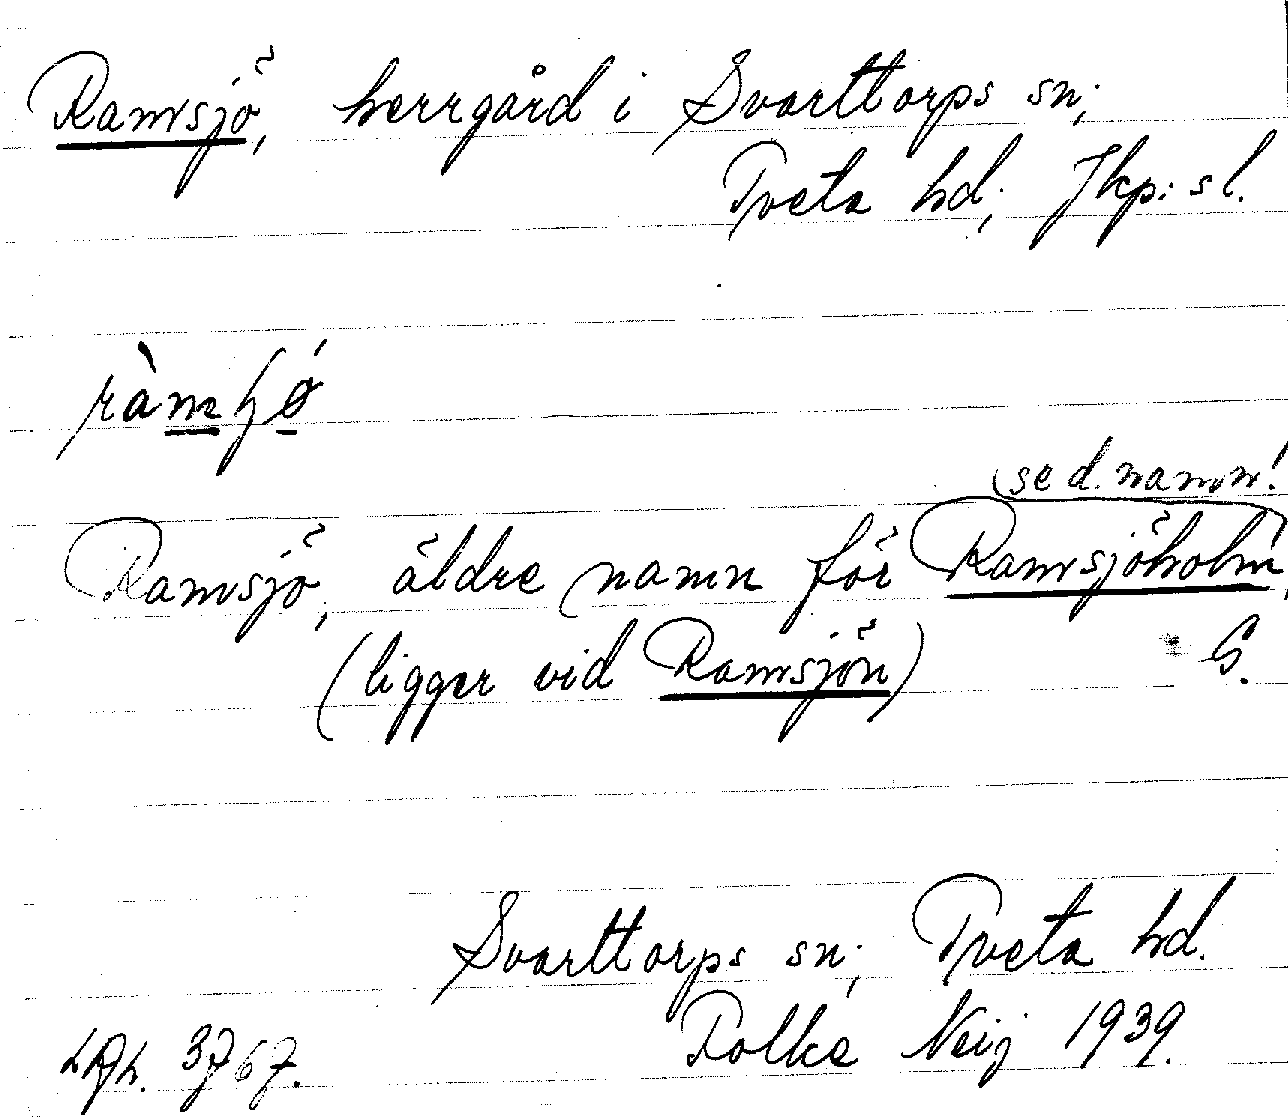 Ramsjö, herrgård i Svarttorps sn;
Tveta hd; Jkp: s l.
(se d. namn!
Ramsjö, äldre namn för Ramsjöholm,
(ligger vid Ramsjön) G.
Svarttorps sn; Tveta hd.
Folke Neij 1939.
3767.